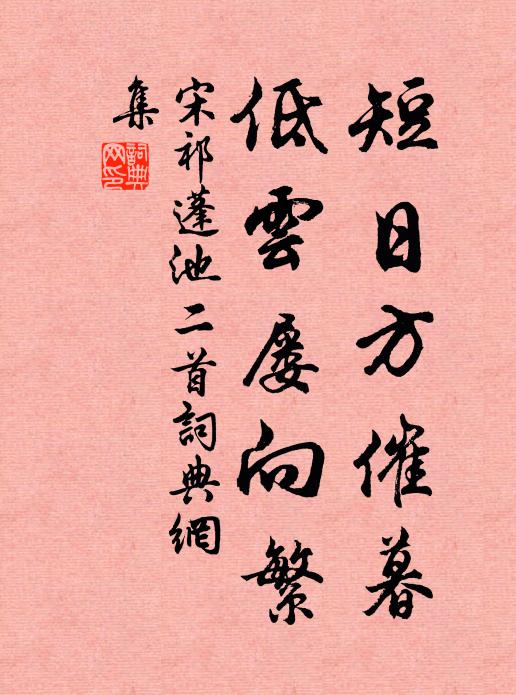 短日方催暮
低雲屡向繁
宋祁蓬池二首詞典網
集
詞典
网印